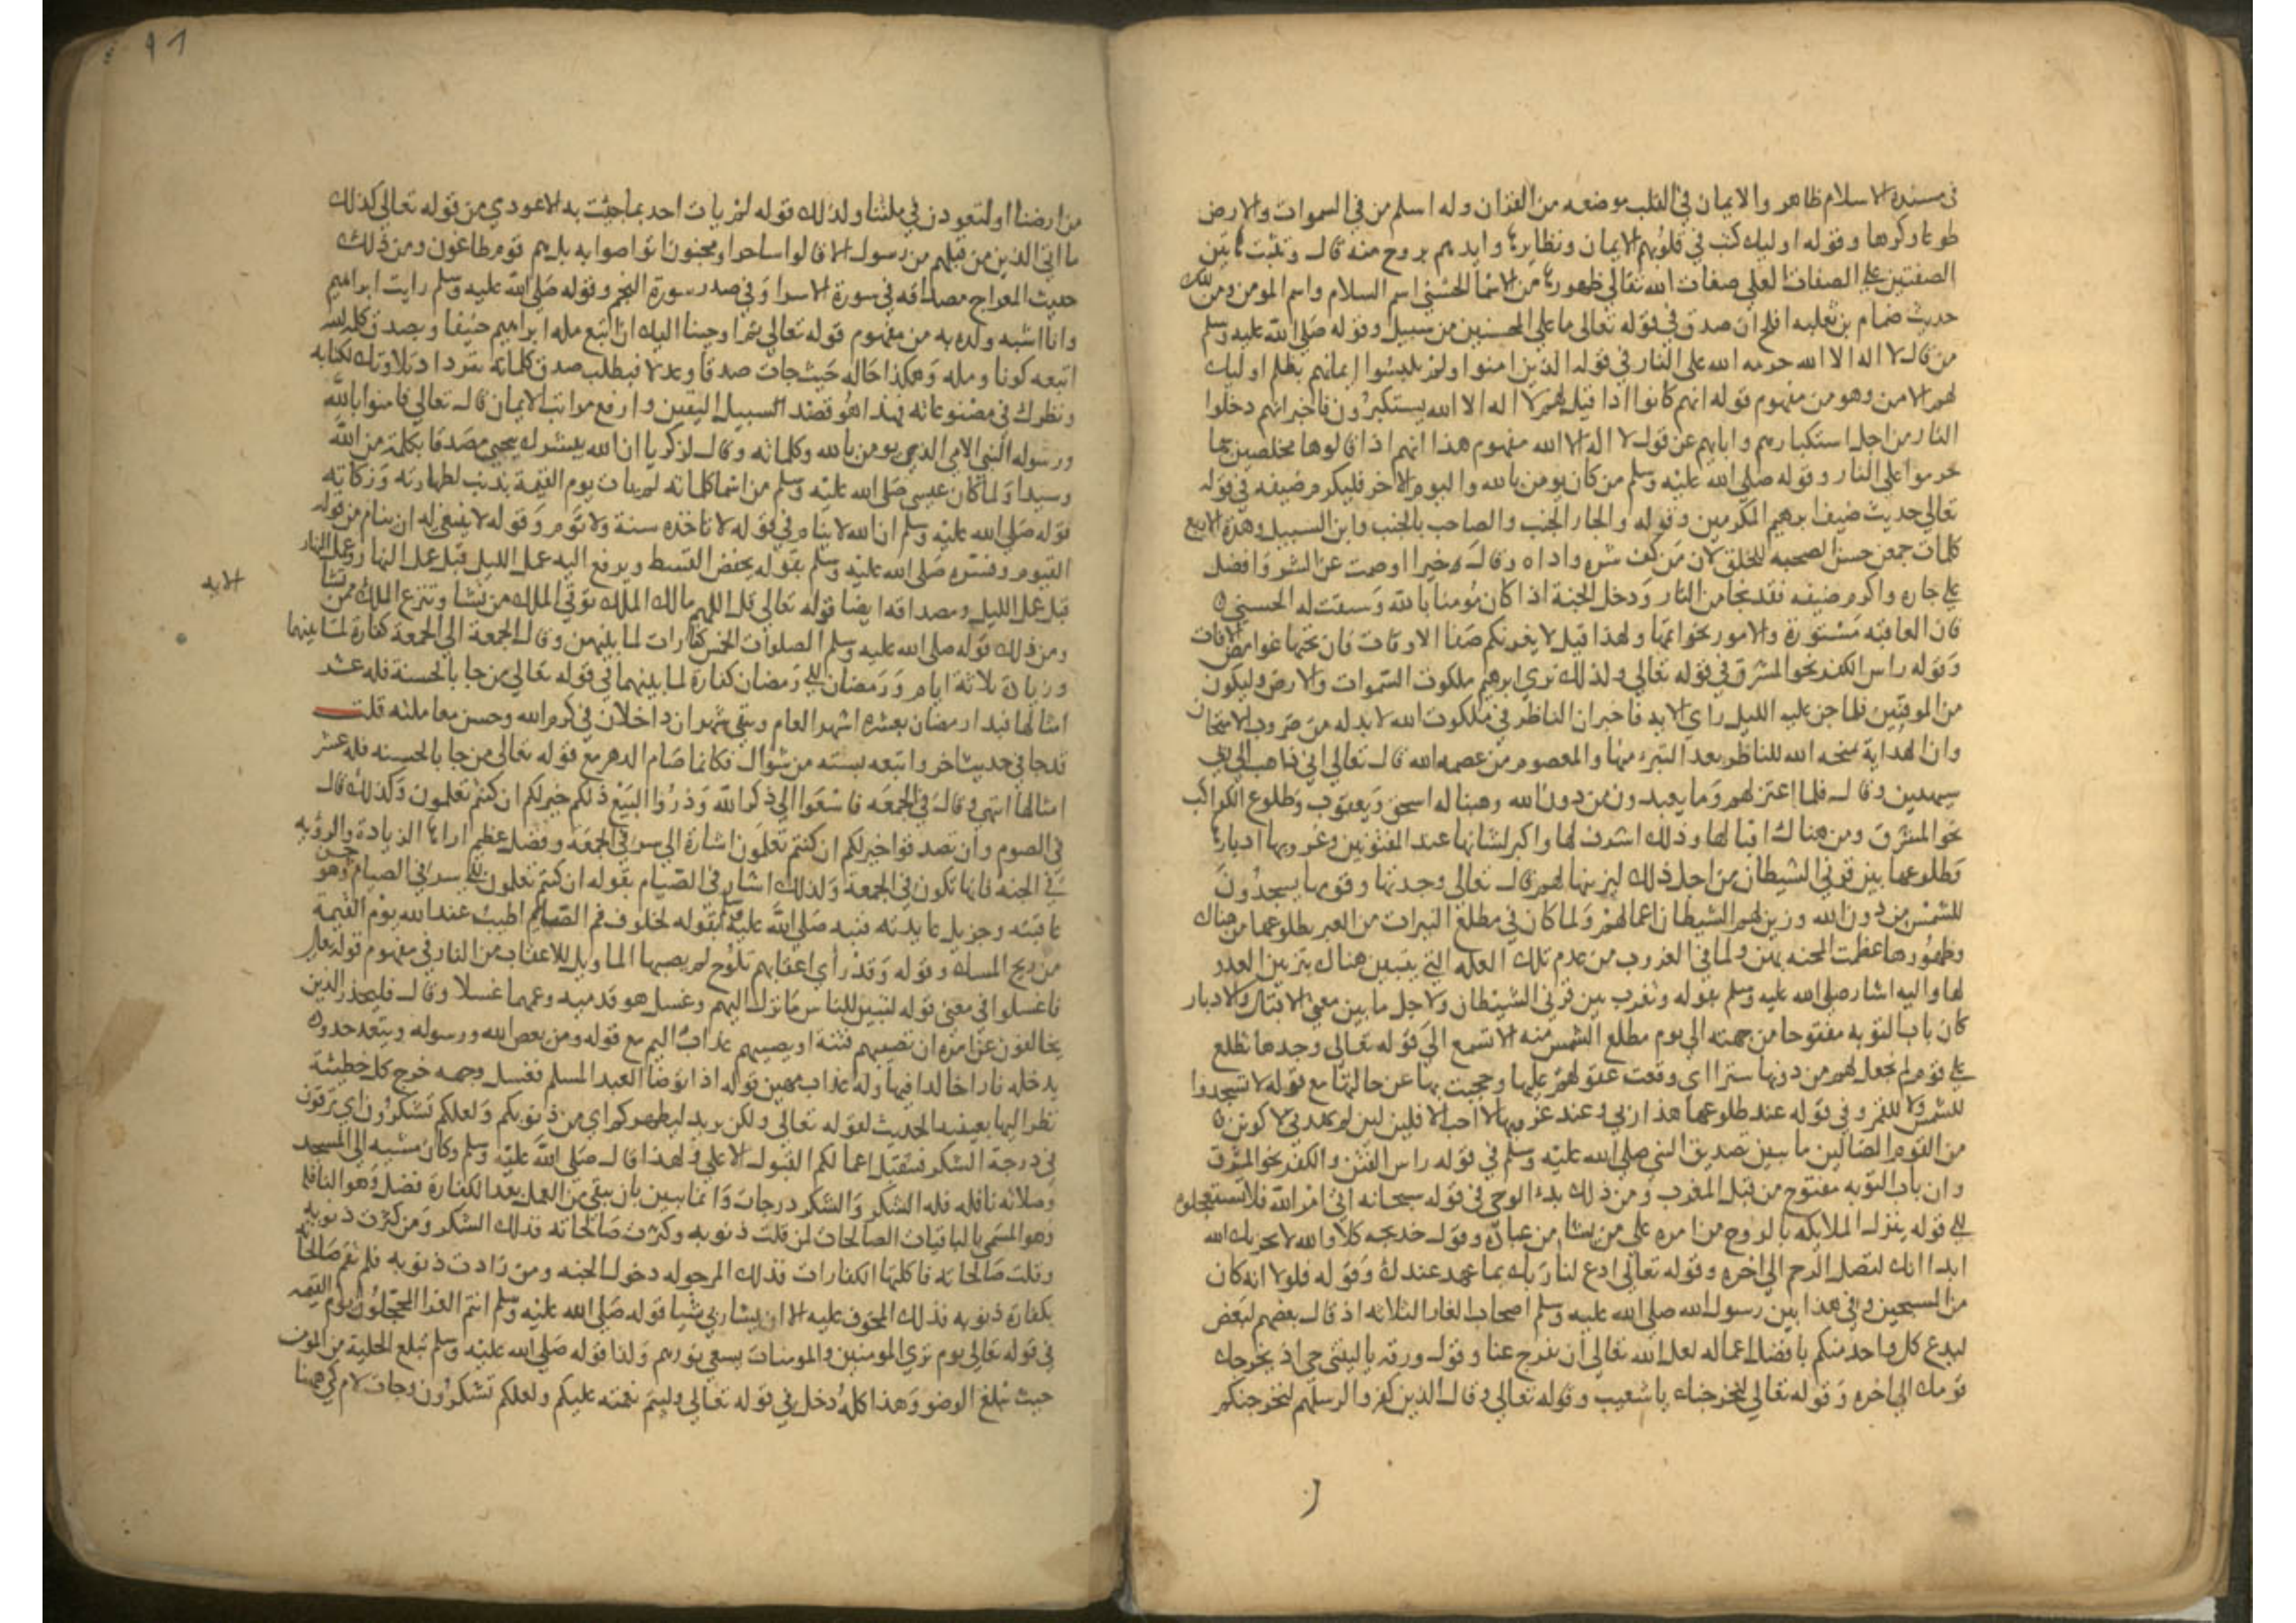 في مسنده الاسلام ظاهر والايمان في القلب موضعه من القران وله اسلم من في السموات والارض
طوعا وكرها وقوله اوليك كتب في قلوبهم الايمان ونظايرها وايدهم بروح منه قال
الصفتين على الصفات لعلي صفات الله تعالى ظهورها من الاسما الحسنى اسم السلام واسم المومن ومن ذلك
حديث ضمام بن ثعلبه افلح ان صدق في قوله تعالى ما على المحسنين من سبيل وقوله صلى الله عليه وسلم
من قال لا اله الا الله حرمه الله على النار في قوله الذين امنوا ولم يلبسوا ايمانهم بظلم اوليك
لهم الامن وهو من مفهوم قوله انهم كانوا اذا قيل لهم لا اله الا الله يستكبرون فاخبر انهم دخلوا
النار من اجل استكبارهم وابايهم عن قول لا اله الا الله مفهوم هذا انهم اذا قالوها مخلصين بها
حرموا على النار وقوله صلى الله عليه وسلم من كان يومن بالله واليوم الاخر فليكرم ضيفه في قوله
تعالى حديث ضيف ابرهيم المكرمين وقوله والجار الجنب والصاحب بالجنب وابن السبيل وهذه الاربع
كلمات جمعن حسن الصحبه للخلق لان من كف شره واذاه وقال خيرا او صمت عن الشر وافضل
على جاره واكرم ضيفه فقد نجا من النار ودخل الجنة اذا كان مومنا بالله وسبقت له الحسنى
فان العاقبه مستورة والامور بخواتمها ولهذا قيل لا يغرنكم صفا الاوقات فان تحتها غوامض الافات
وقوله راس الكفر نحو المشرق في قوله تعالى وكذلك نري ابرهيم ملكوت السموات والارض وليكون
من الموقنين فلما جن عليه الليل راى الايه فاخبر ان الناظر في ملكوت الله لا بد له من ضروب الامتحان
وان الهداية منحه الله للناظر بعد التبرء منها والمعصوم من عصمه الله قال تعالى اني ذاهب الى ربي
سيهدين وقال فلما اعتزلهم وما يعبدون من دون الله وهبنا له اسحق ويعقوب وطلوع الكواكب
نحو المشرق ومن هناك اقبالها وذلك اشرف لها واكبر لشانها عند المفتونين وغروبها ادبارها
وطلوعها بين قرني الشيطان من اجل ذلك ليزينها لهم قال تعالى وجدتها وقومها يسجدون
للشمس من دون الله وزين لهم الشيطان اعمالهم ولما كان في مطلع النيرات من العبر بطلوعها من هناك
وظهورها عظمت المحنه بهن ولما في الغروب من عدم تلك العله التي يتبين هناك بتزين العدو
لها واليه اشار صلى الله عليه وسلم بقوله وتغرب بين قرني الشيطان ولاجل ما بين معنى الاقبال والادبار
كان باب التوبه مفتوحا من جهته الى يوم مطلع الشمس منه الا تسمع الى قوله تعالى وجدها تطلع
على قوم لم نجعل لهم من دونها سترا اي وقعت عقولهم عليها وحجبت بها عن خالقها مع قوله لا تسجدوا
للشمس ولا للقمر وفي قوله عند طلوعها هذا ربي وعند غروبها لا احب الافلين لين لم يهدني ربي لاكونن
من القوم الضالين ما يبين تصديق النبي صلى الله عليه وسلم في قوله راس الفتن والكفر نحو المشرق
وان باب التوبه مفتوح من قبل المغرب ومن ذلك بدء الوحي في قوله سبحانه اتى امر الله فلا تستعجلوه
الى قوله ينزل الملايكه بالروح من امره على من يشا من عباده وقول خديجه كلا والله لا يحزنك الله
ابدا انك لتصل الرحم الى اخره وقوله تعالى ادع لنا ربك بما عهد عندك وقوله فلولا انه كان
من المسبحين وفي هذا بين رسول الله صلى الله عليه وسلم اصحاب الغار الثلاثه اذ قال بعضهم لبعض
ليدع كل واحد منكم بافضل اعماله لعل الله تعالى ان يفرج عنا وقول ورقه يا ليتني حي اذ يخرجك
قومك الى اخره وقوله تعالى لنخرجنك يا شعيب وقوله تعالى وقال الذين كفروا لرسلهم لنخرجنكم
٩٦
من ارضنا او لتعودن في ملتنا ولذلك قوله لم يات احد بما جيت به الا عودي من قوله تعالى كذلك
ما اتى الذين من قبلهم من رسول الا قالوا ساحر او مجنون اتواصوا به بل هم قوم طاغون ومن ذلك
حديث المعراج مصداقه في سورة الاسرا وفي صدر سورة النجم وقوله صلى الله عليه وسلم رايت ابراهيم
وانا اشبه ولده به من مفهوم قوله تعالى ثم اوحينا اليك ان اتبع مله ابراهيم حنيفا ويصدق كلمه الله
اتبعه كونا ومله وهكذا حاله حيث جات صدقا وعدلا فبطلب صدق كلماته بترداد تلاوتك لكتابه
ونظرك في مصنوعاته فهذا هو قصد السبيل اليقين وارفع مراتب الايمان قال تعالى فامنوا بالله
ورسوله النبي الامي الذي يومن بالله وكلماته وقال لزكريا ان الله يبشرك بيحيى مصدقا بكلمة من الله
وسيدا ولما كان عيسى صلى الله عليه وسلم من اسما كلماته لم يات يوم القيمة بذنب لطهارته وزكاته
قوله صلى الله عليه وسلم ان الله لا ينام في قوله لا تاخذه سنة ولا نوم وقوله لا ينبغي له ان ينام من قوله
القيوم وفسره صلى الله عليه وسلم بقوله يخفض القسط ويرفع اليه عمل الليل قبل عمل النهار وعمل النهار
قبل عمل الليل ومصداقه ايضا قوله تعالى قل اللهم مالك الملك توتي الملك من تشا وتنزع الملك ممن تشا
الايه
ومن ذلك قوله صلى الله عليه وسلم الصلوات الخمس كفارات لما بينهن وقال الجمعة الى الجمعة كفارة لما بينهما
وزيادة ثلاثة ايام ورمضان الى رمضان كفارة لما بينهما في قوله تعالى من جا بالحسنة فله عشر
امثالها فبدا رمضان بعشره اشهر العام وبقي شهران داخلان في كرم الله وحسن معاملته قلت
قد جا في حديث اخر واتبعه بسته من شوال فكانما صام الدهر مع قوله تعالى من جا بالحسنه فله عشر
امثالها انتهى وقال في الجمعه فاسعوا الى ذكر الله وذروا البيع ذلكم خير لكم ان كنتم تعلمون وكذلك قال
في الصوم وان تصدقوا خير لكم ان كنتم تعلمون اشارة الى سر في الجمعة وفضل عظيم اراها الزيادة والرؤيه
في الجنه فانها تكون في الجمعة ولذلك اشار في الصيام بقوله ان كنتم تعلمون الى سر في الصيام وهو حسن
عاقبته وجزيل عايدته فنبه صلى الله عليه وسلم بقوله لخلوف فم الصايم اطيب عند الله يوم القيمة
من ريح المسك وقوله وقد راى اعقابهم تلوح لم يصبها الما ويل للاعقاب من النار في مفهوم قوله تعالى
فاغسلوا في معنى قوله لتبين للناس ما نزل اليهم وغسل هو قدميه وعمهما غسلا وقال فليحذر الذين
يخالفون عن امره ان تصيبهم فتنة او يصيبهم عذاب اليم مع قوله ومن يعص الله ورسوله ويتعد حدوده
يدخله نارا خالدا فيها وله عذاب مهين قوله اذا توضا العبد المسلم فغسل وجهه خرج كل خطيئة
نظر اليها بعينيه الحديث لقوله تعالى ولكن يريد ليطهركم اي من ذنوبكم ولعلكم تشكرون اي ترقون
في درجة الشكر فيتقبل اعمالكم القبول الاعلى ولهذا قال صلى الله عليه وسلم وكان مشيه الى المسجد
وصلاته نافله فله الشكر والشكر درجات وانما يبين بان يبقى من العمل بعد الكفارة فضل وهو النافله
وهو المسمى بالباقيات الصالحات لمن قلت ذنوبه وكثرت صالحاته فذلك الشكر ومن كثرت ذنوبه
وقلت صالحاته فاكلتها الكفارات فذلك المرجو له دخول الجنه ومن زادت ذنوبه فلم تقم صالحاته
بكفارة ذنوبه فذلك المخوف عليه الا ان يشا ربي شيا قوله صلى الله عليه وسلم انتم الغر المحجلون يوم القيمه
في قوله تعالى يوم ترى المومنين والمومنات يسعى نورهم ولنا قوله صلى الله عليه وسلم تبلغ الحلية من المومن
حيث تبلغ الوضو وهذا كله دخل في قوله تعالى وليتم نعمته عليكم ولعلكم تشكرون وجات لام كي هنا